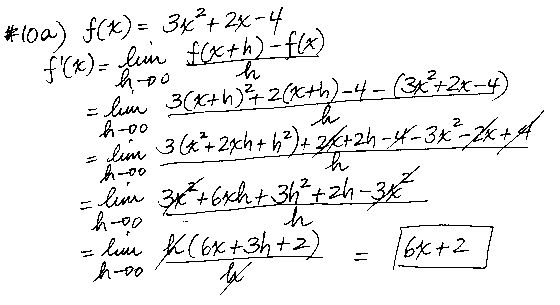 #10a) f(x) = 3x² + 2x - 4
f'(x) = lim h→0 f(x+h) - f(x) / h
= lim h→0 3(x+h)² + 2(x+h) - 4 - (3x² + 2x - 4) / h
= lim h→0 3(x² + 2xh + h²) + 2x + 2h - 4 - 3x² - 2x + 4 / h
= lim h→0 3x² + 6xh + 3h² + 2h - 3x² / h
= lim h→0 h(6x + 3h + 2) / h = 6x + 2